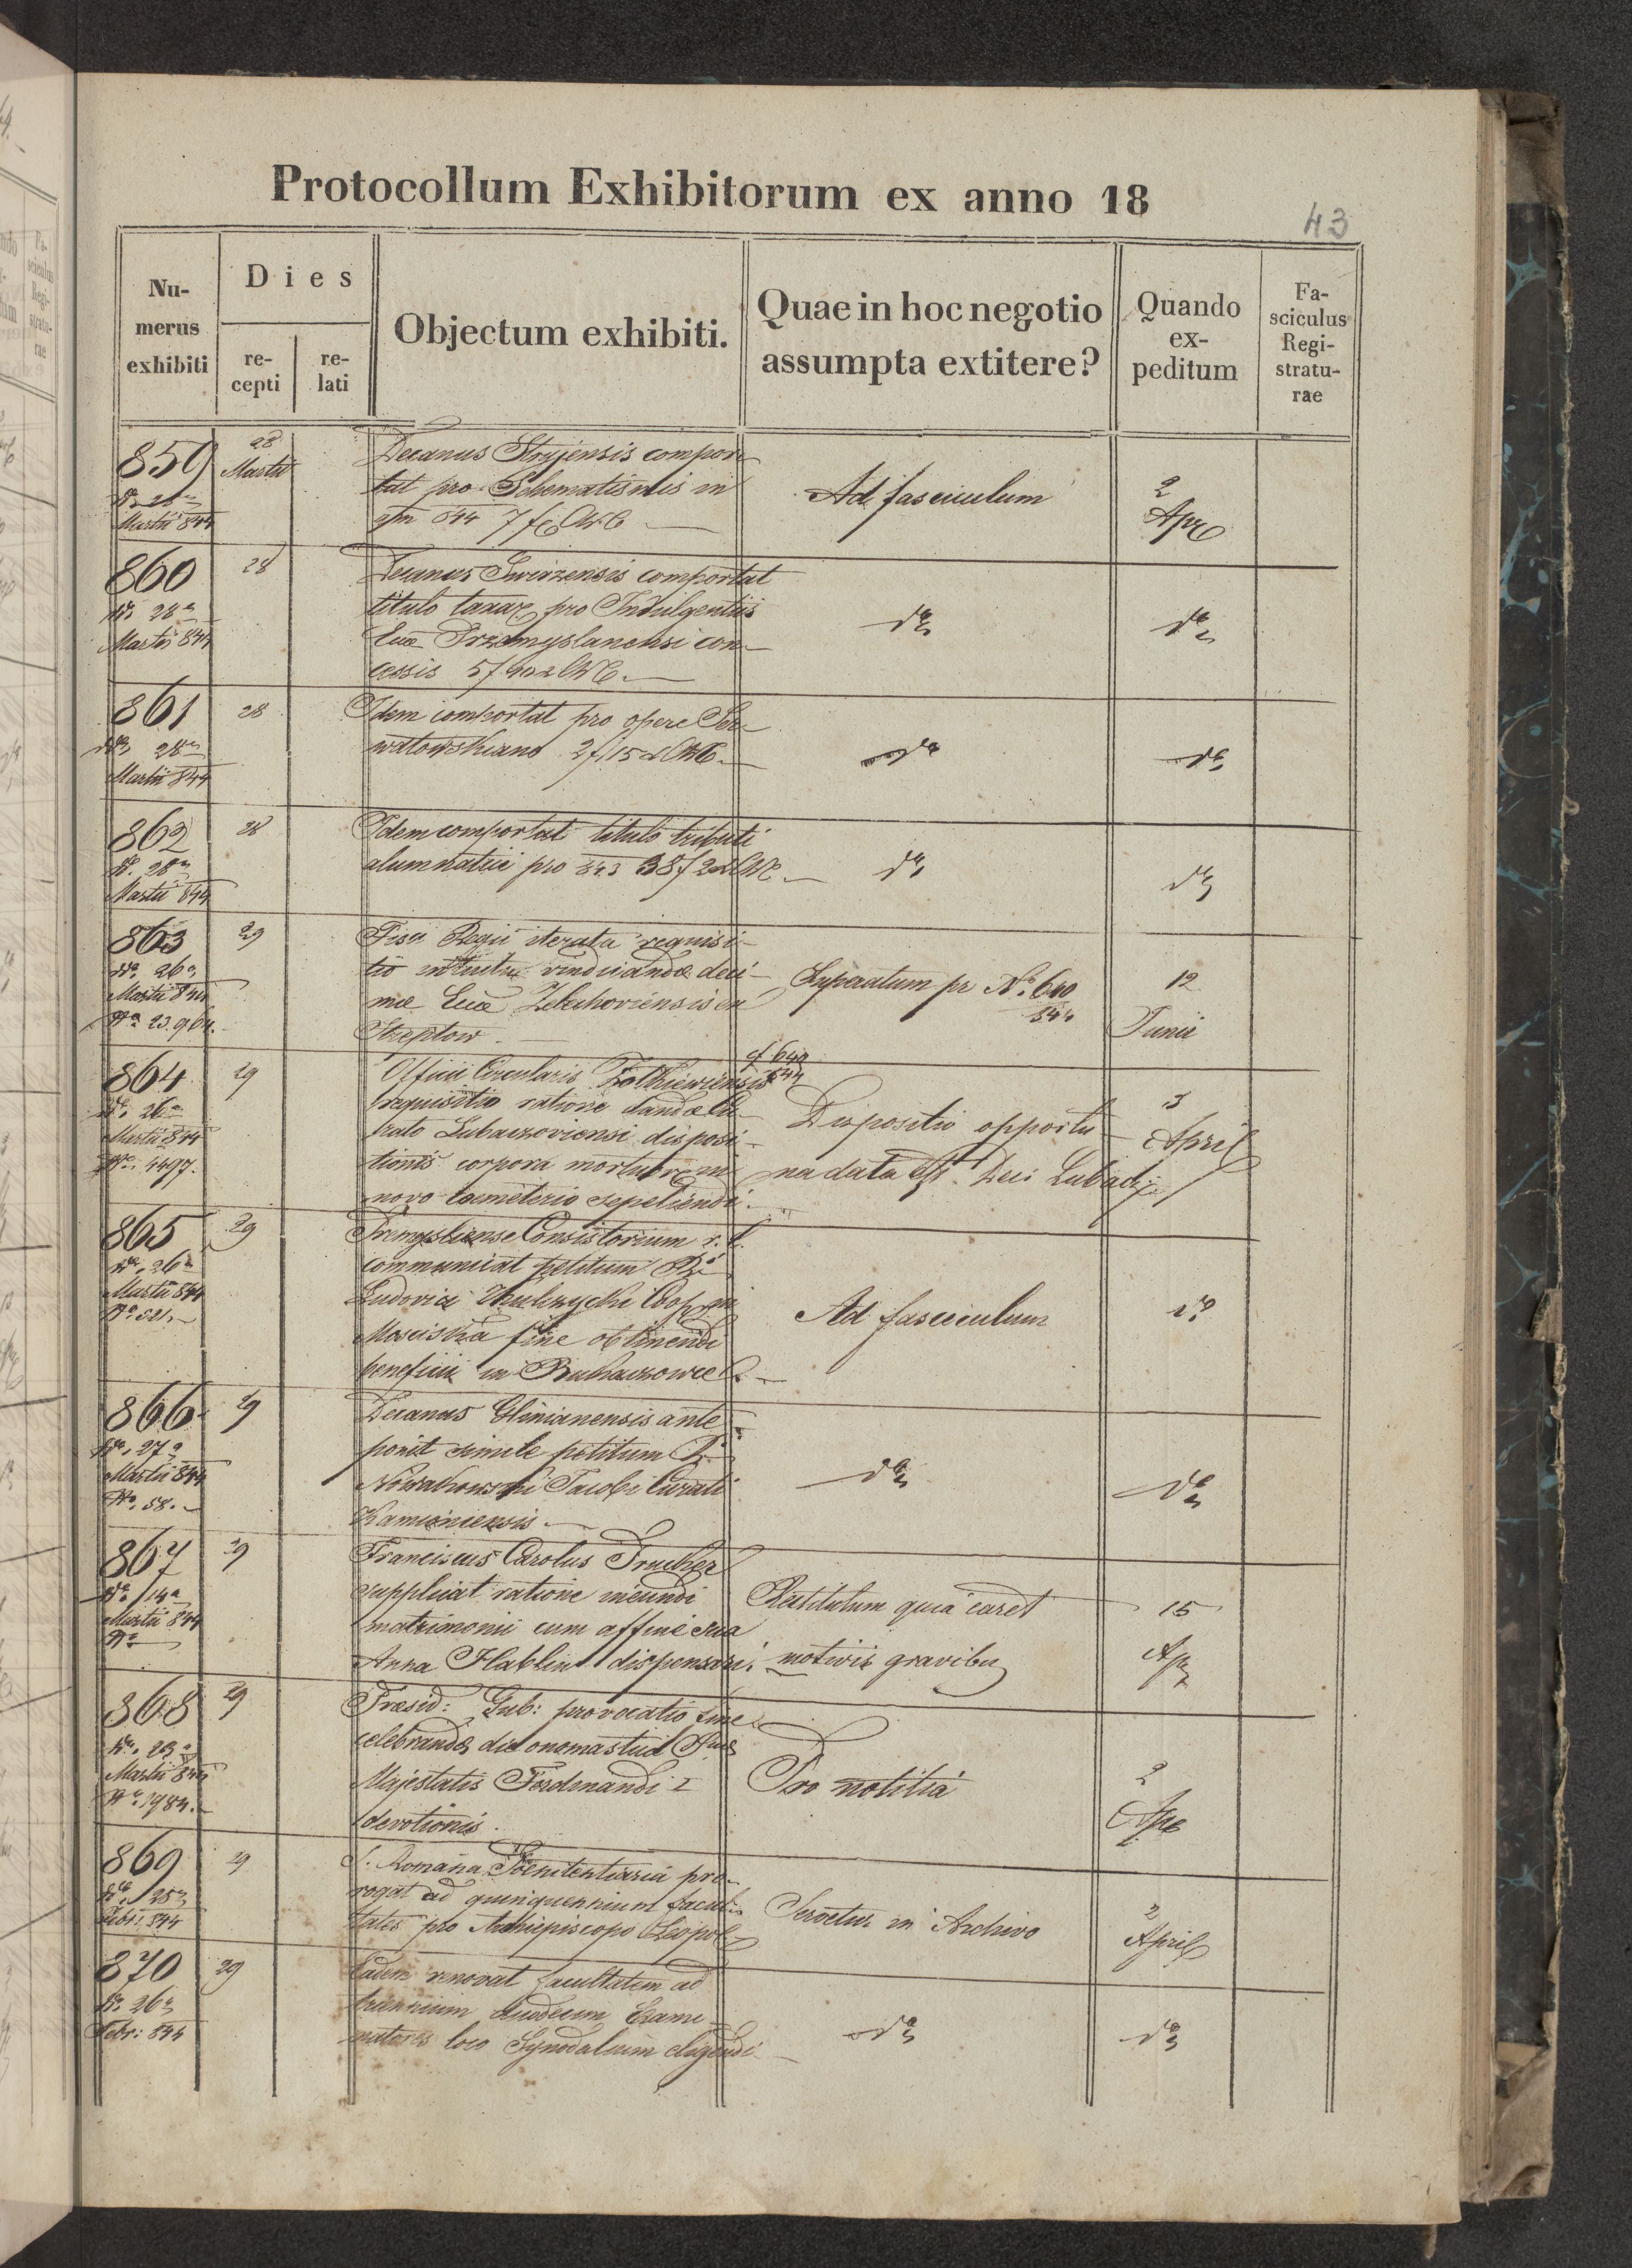 Protocollum Exhibitorum ex anno 18
43
Nu-
merus
exhibiti
Dies
re-
cepti
re-
lati
Objectum exhibiti.
Quae in hoc negotio
assumpta extitere?
Quando
ex-
peditum
Fa-
sciculus
Regi-
stratu-
rae
859
Martii 844
28
Martii
Decanus Stryjensis compor-
tat pro Schematismis in
844 7 f
Ad fasciculum
2
Apr
860
28
Martii 844
28
Decanus Swirzensis comportat
titulo taxae pro Indulgentiis
Przemyslanensi con-
cessis 5f
861
28
Martii 844
28
Idem comportat pro opere Ser-
watowskiano 2f 15
862
28
Martii 844
28
Idem comportat titulo tributi
alumnatici pro 843 38f
863
26
Martii 844
No 23.904.
29
Fisci Regii iterata requisi-
tio intuitu vindicandae deci-
mae Zelechoviensis ex
Streptow.
Superatum pr No 640
844
12
Junii
864
26
Martii 844
No 4497.
29
cf 640
844
Officii Circularis Zolkiewiensis
requisitio ratione dandae Cu-
rato Lubaczoviensi disposi-
tionis corpora mortuor. in
novo caemeterio sepeliendi.
Dispositio opportu-
na data est Deci Lubacz.
3
April
865
26
Martii 844
No 521.
29
Premysliense Consistorium r. l.
communicat petitum
Ludovici Kulczycki Coop. in
Mosciska fine obtinendi
beneficii in Buhaczowce
Ad fasciculum
866
27
Martii 844
No. 58.
29
Decanus Glinianensis ante-
ponit simile petitum
Nowakowski Jacobi Curati
Kamioniensis
867
14
Martii 844
29
Franciscus Carolus
supplicat ratione ineundi
matrimonii cum affine sua
Anna dispensari.
Restitutum quia caret
motivis gravibus
15
Apr
868
23
Martii 844
No 1984.
29
Praesid: Gub: provocatio fine
celebrandae diei onomastici Suae
Majestatis Ferdinandi I
devotionis.
Pro notitia
2
Apr
869
25
Febr: 844
29
S. Romana Poenitentiaria pro-
rogat ad quinquennium facul-
tates pro Archiepiscopo Leopol
Servetur in Archivo
2
April
870
26
Febr: 844
29
Eadem renovat facultatem ad
triennium duodecim Exami-
natores loco Synodalium eligendi